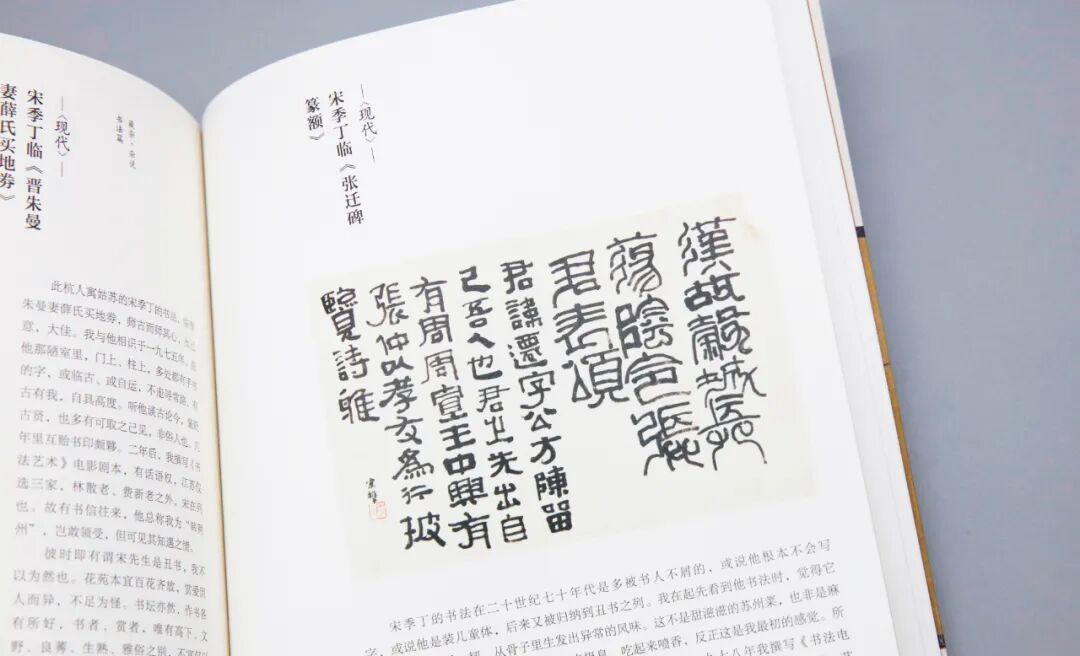 书法篇
—〈现代〉—
宋季丁临《晋朱曼
妻薛氏买地券》
此杭人寓姑苏的宋季丁的书法,临
朱曼妻薛氏买地券,师古而师其心,
意,大佳。我与他相识于一九七五年,
他那陋室里,门上、柱上,多处都有
的字,或临古、或自运,不走寻常路,有
古有我,自具高度。听他谈古论今,
古贤,也多有可取之己见,非俗人也。
年里互贻书印颇夥。二年后,我撰写《书
法艺术》电影剧本,有话语权,江苏仅
选三家,林散老、费新老之外,宋在列
也。故有书信往来,他总称我为“韩荆
州”,岂敢领受,但可见其知遇之情。
彼时即有谓宋先生是丑书,我不
以为然也。花苑本宜百花齐放,赏爱因
人而异,不足为怪。书坛亦然,作书各
有所好,书者、赏者,唯有高下、文
野、良莠、生熟、雅俗之别,
—〈现代〉—
宋季丁临《张迁碑
篆额》
漢故穀城長
蕩陰令張
君表頌
君諱遷字公方陳畱
己吾人也君之先出自
有周周宣王中興有
張仲以孝友為行披
覽詩雅
宋季丁的书法在二十世纪七十年代是多被书人不屑的,或说他根本不会写
字,或说他是装儿童体,后来又被归纳到丑书之列。我在起先看到他书法时,觉得它
从骨子里生发出异常的风味。这不是甜滋滋的苏州菜,也非是麻
吃起来喷香,反正这是我最初的感觉。所
八年我撰写《书法电